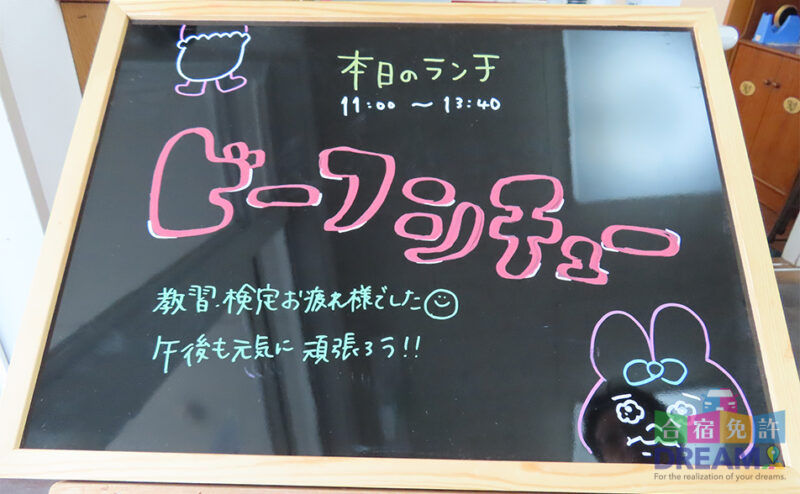 本日のランチ
11:00 ～ 13:40
ビーフシチュー
教習・検定お疲れ様でした
午後も元気に頑張ろう!!
合宿免許
DREAM!
For the realization of your dreams.